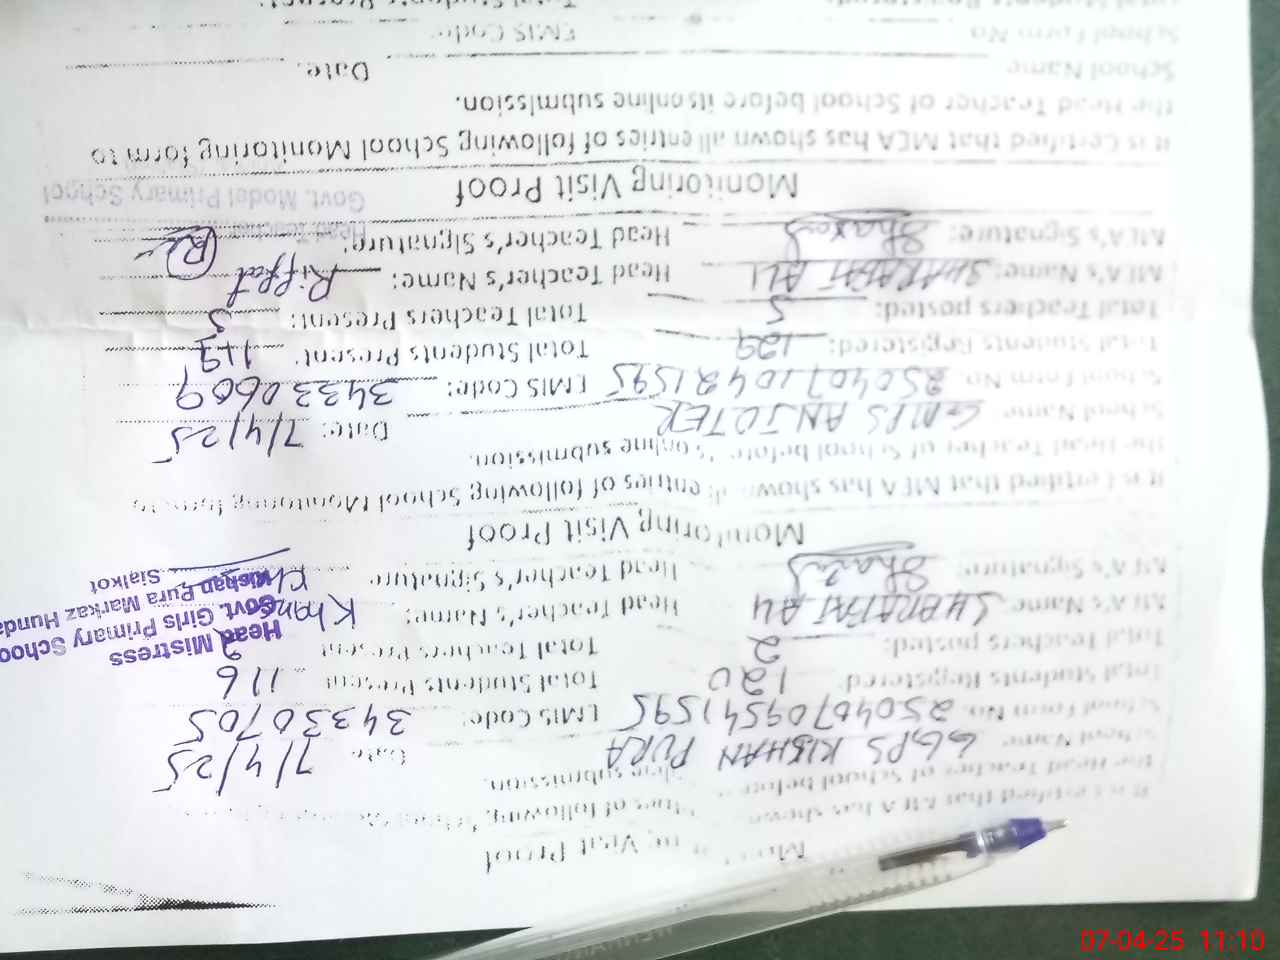 Visit Proof
It is certified that MEA has shown entries of following
the Head Teacher of School before online submission.
School Name: GGPS KISHAN PURA Date: 7/4/25
School Form No. 25040709541595 EMIS Code: 34330705
Total Students Registered: 120 Total Students Present 116
Total Teachers posted: 2 Total Teachers Present 2
MEA's Name: SHARAFAT ALI Head Teacher's Name:
MEA's Signature: Head Teacher's Signature
Head Mistress
Govt. Girls Primary School
Kishan Pura Markaz
Sialkot
Monitoring Visit Proof
It is Certified that MEA has shown all entries of following School Monitoring form to
the Head Teacher of School before its online submission.
School Name GMPS ANJOTER Date: 7/4/25
School Form No. 250407104215 95 EMIS Code: 34330609
Total Students Registered: 129 Total Students Present: 119
Total Teachers posted: 5 Total Teachers Present: 5
MEA's Name: SHARAFAT ALI Head Teacher's Name: Riffat
MEA's Signature: Head Teacher's Signature:
Head Teacher
Govt. Model Primary School
Monitoring Visit Proof
It is Certified that MEA has shown all entries of following School Monitoring form to
the Head Teacher of School before its online submission.
School Name Date:
School Form No EMIS Code:
07-04-25 11:10